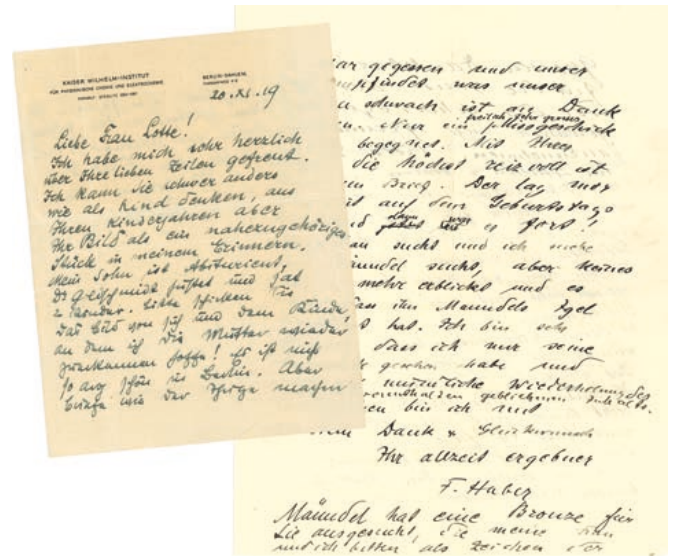 KAISER WILHELM-INSTITUT
FÜR PHYSIKALISCHE CHEMIE UND ELEKTROCHEMIE
BERLIN-DAHLEM,
20.XI.19
Liebe Frau Lotte!
Ich habe mich sehr herzlich
über Ihre lieben Zeilen gefreut.
Ich kann Sie schwer anders
wie als Kind denken, aus
Ihren Kinderjahren aber
Ihr Bild als ein nahezugehöriges
Stück in meinem Erinnern.
Mein Sohn ist Abiturient,
und hat
2 Kinder. Bitte schicken Sie
das Bild von sich und dem Kinde,
an dem ich die Mutter wieder
zuerkennen hoffe! Es ist nicht
so arg schön in Berlin. Aber
wie der machen
gegessen und unser
was unser
schwach ist an Dank
Nur ein
begegnet. Mit Ihrem
die höchst reizvoll ist
Brief. Der lag mir
auf dem Geburtstags
dann war es fort!
sucht und ich suche
sucht, aber keines
mehr erblickt und es
ihn Männdels Igel
hat. Ich bin sehr
dass ich nur seine
gesehen habe und
Wiederholung des
geblichenen Inhalts.
bin ich mit
Dank & Glückwunsch
Ihr allzeit ergebner
F. Haber
Männdel hat eine Bronze für
Sie ausgesucht, die meine Frau
und ich bitten als Zeichen